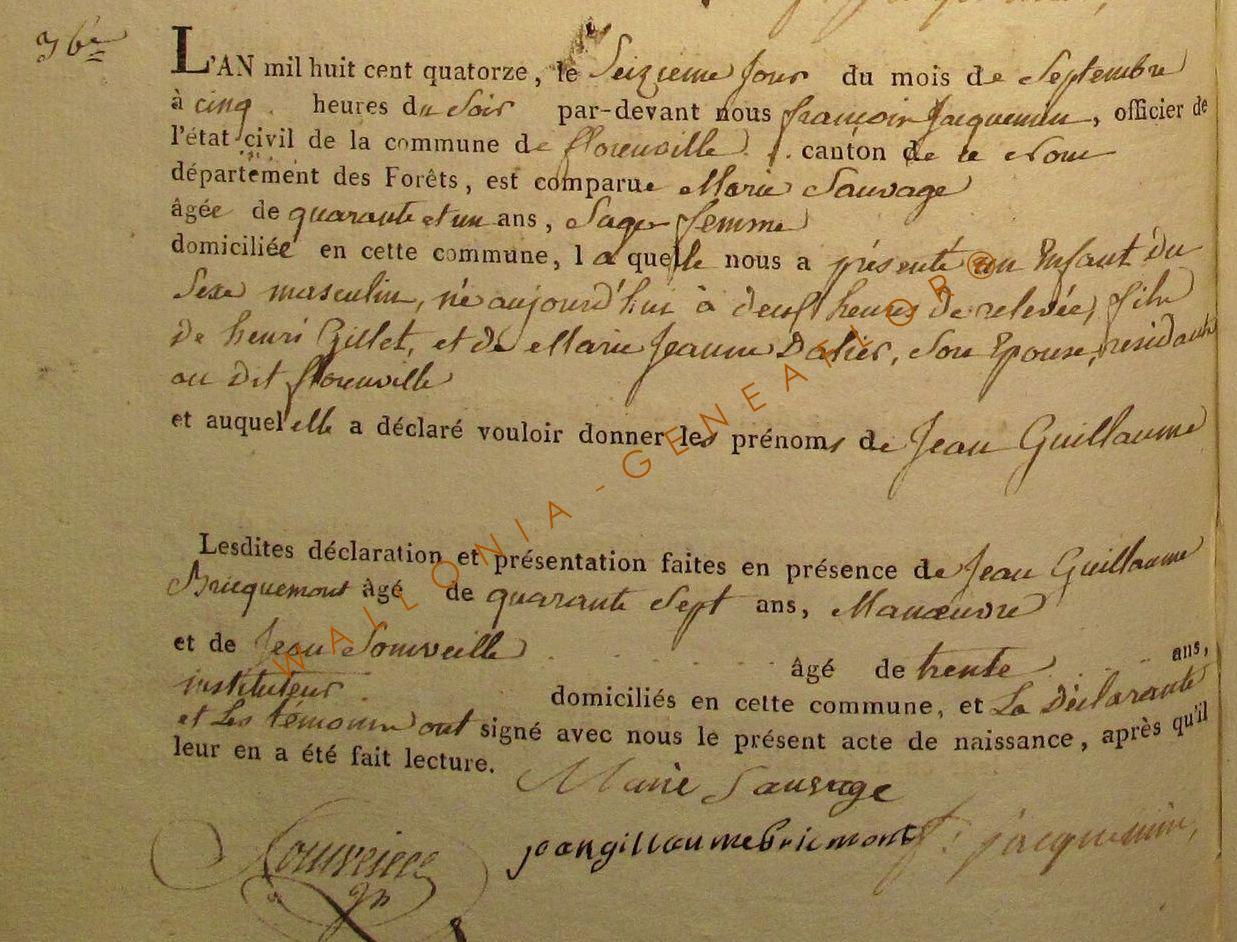 36e
L'AN mil huit cent quatorze, le Seizieme Jour du mois de Septembre
à cinq heures du Soir par-devant nous françois Jacquemin, officier de
l'état civil de la commune de florenville canton de ce Nom
département des Forêts, est comparue Marie Sauvage
âgée de quarante et un ans, Sage femme
domiciliée en cette commune, laquelle nous a présenté un Enfant du
Sexe masculin, né aujourd'hui à deux heures de relevée, fils
de henri Gillet, et de Marie Jeanne Dahér, Son Epouse, residants
au Dit florenville
et auquel elle a déclaré vouloir donner les prénoms de Jean Guillaume
Lesdites déclaration et présentation faites en présence de Jean Guillaume
Bricquemont âgé de quarante Sept ans, Manœuvre
et de Jean Souveille âgé de trente ans,
instituteur domiciliés en cette commune, et La Déclarante
et Les témoins ont signé avec nous le présent acte de naissance, après qu'il
leur en a été fait lecture.
Marie Sauvage
jeangillaumebricmont f: jacquemin,
WALLONIA-GENEAFLOR®